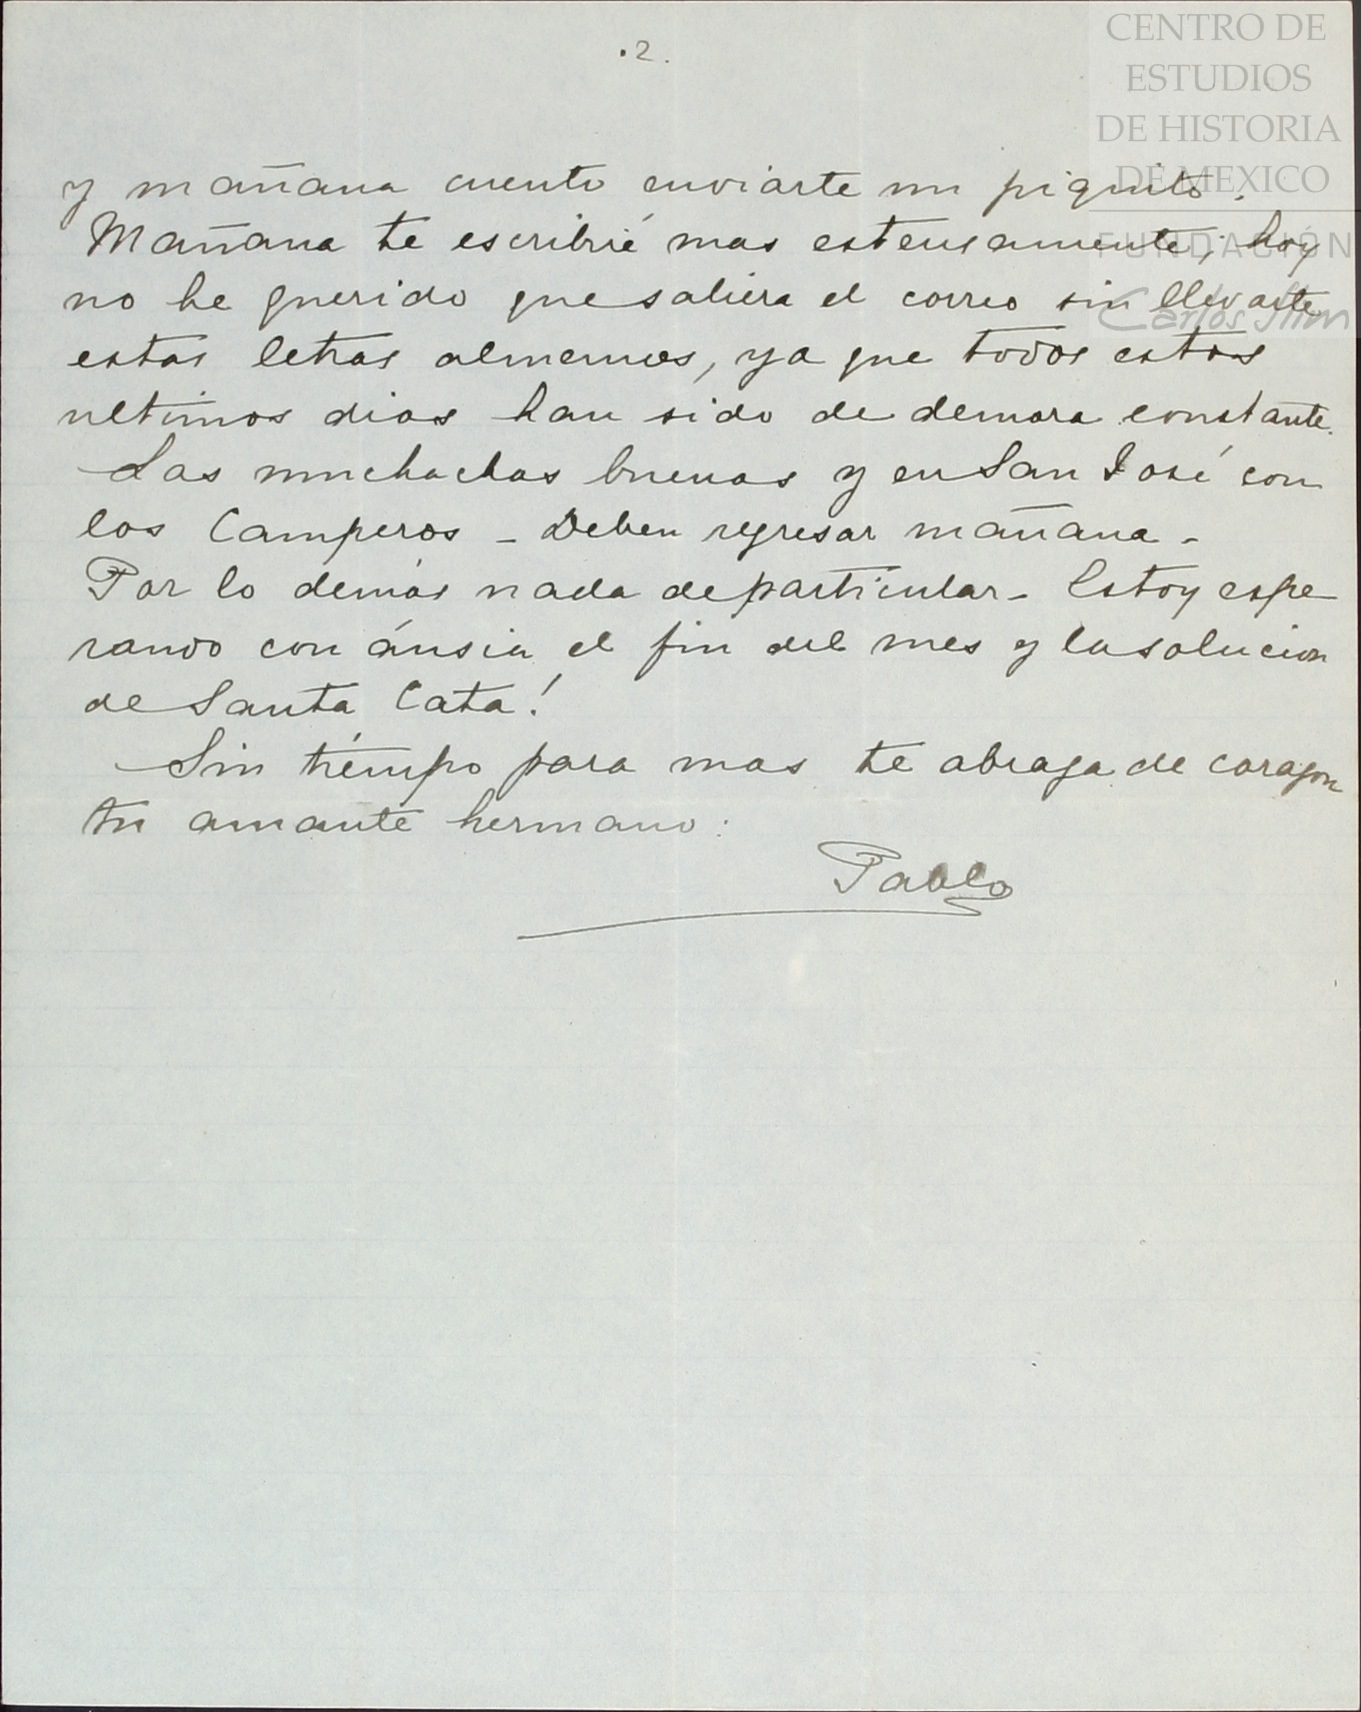 .2.
CENTRO DE
ESTUDIOS
DE HISTORIA
DE MEXICO
FUNDACIÓN
Carlos Slim
y mañana cuento enviarte un piquito.
Mañana te escribiré mas estensamente; hoy
no he querido que saliera el correo sin llevarte
estas letras almenos, ya que todos estos
ultimos dias han sido de demora constante.
Las muchachas buenas y en San José con
los Camperos - Deben regresar mañana -
Por lo demás nada de particular - Estoy espe
rando con ánsia el fin del mes y la solucion
de Santa Cata!
Sin tiempo para mas te abraza de corazon
tu amante hermano:
Pablo